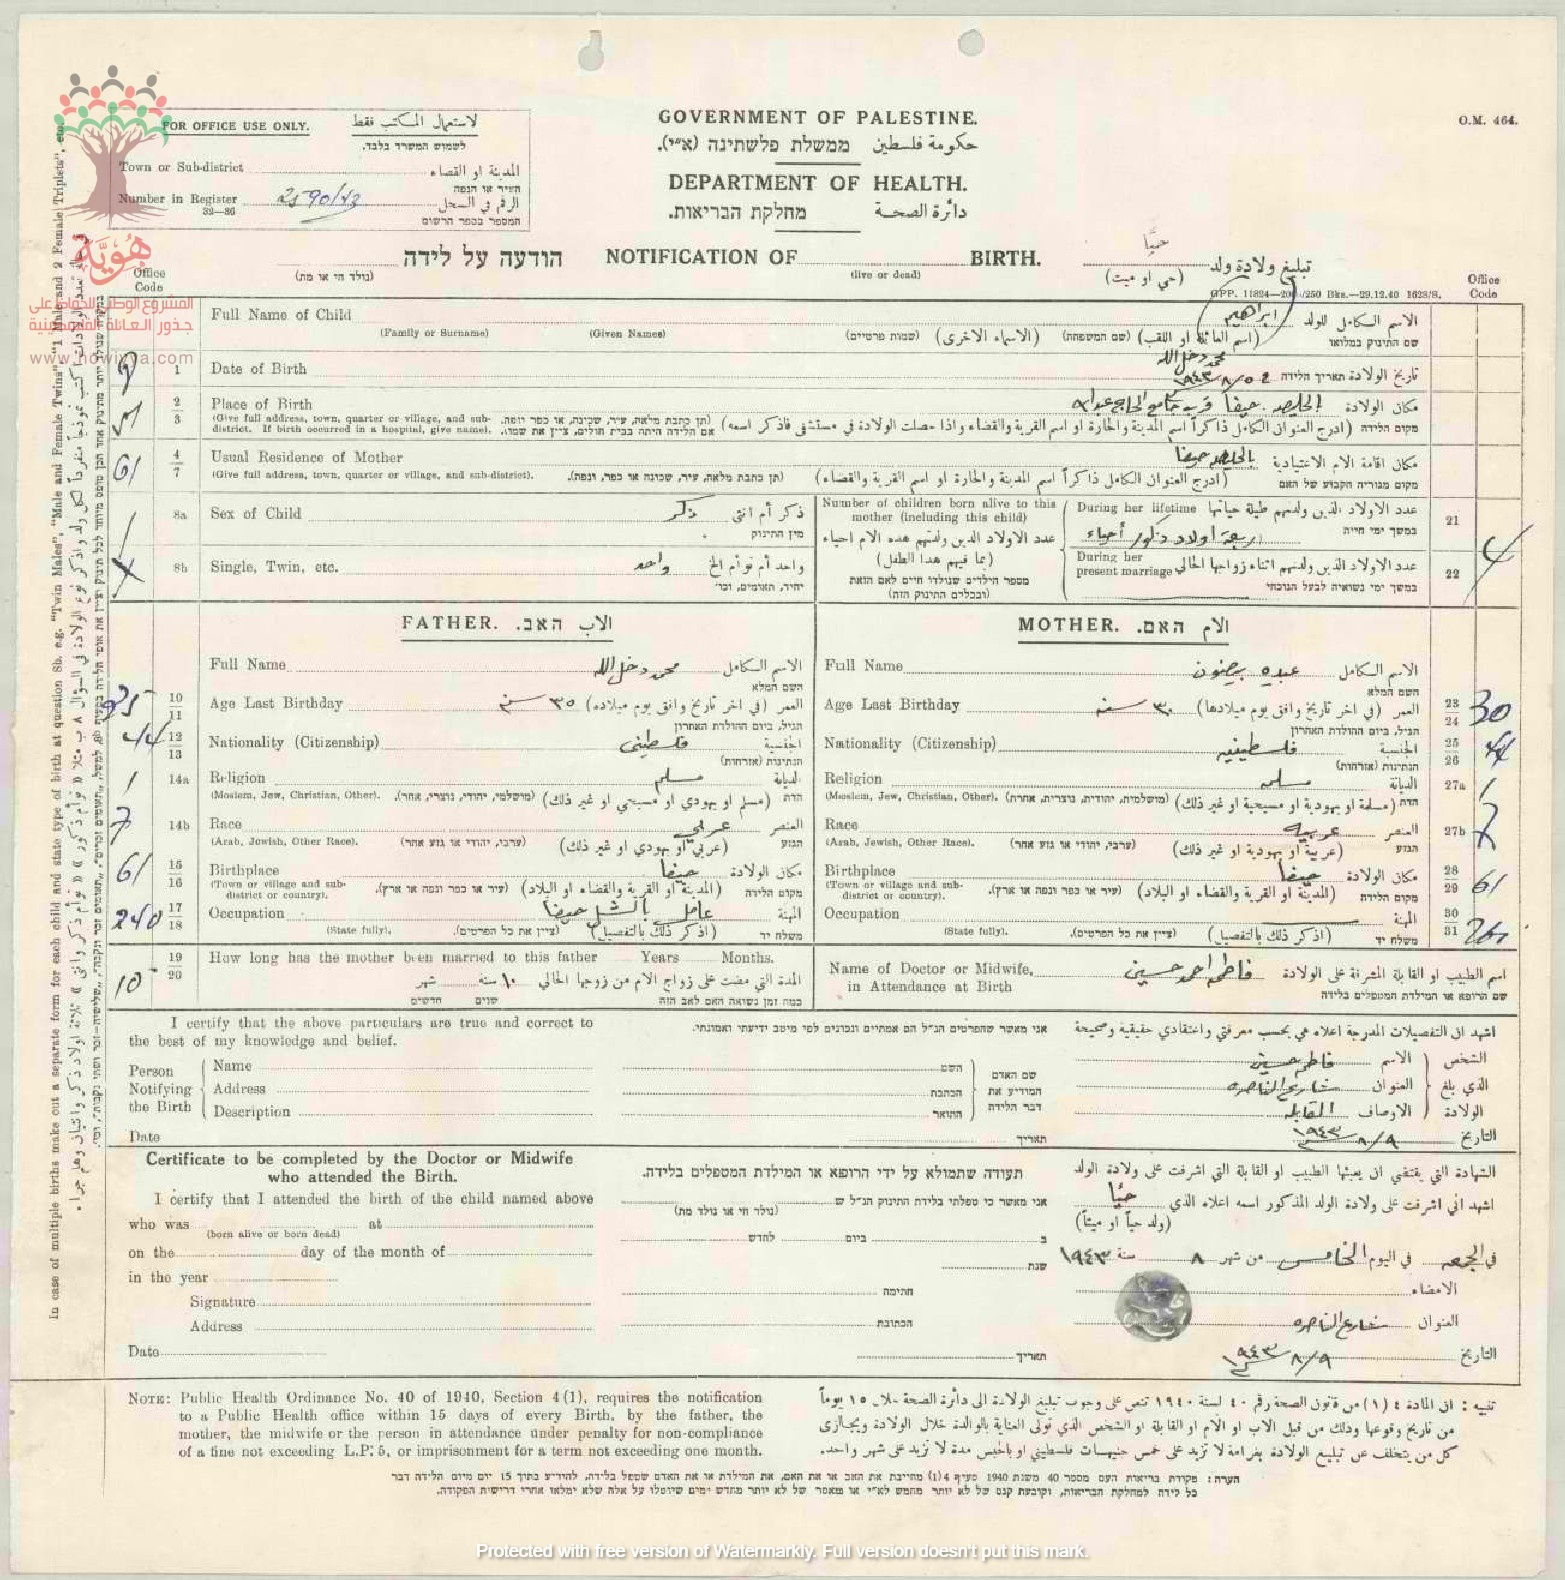 GOVERNMENT OF PALESTINE.
حكومة فلسطين ממשלת פלשתינה (א״י).
DEPARTMENT OF HEALTH.
دائرة الصحة מחלקת הבריאות.
O.M. 464.
FOR OFFICE USE ONLY. لاستعمال المكتب فقط
לשמוש המשרד בלבד.
Town or Sub-district المدينة او القضاء
העיר או הנפה
Number in Register 2590/43 الرقم في السجل
32—86 המספר בספר הרשום
هُويّة
المشروع الوطني للحفاظ على
جذور العائلة الفلسطينية
www.howiyya.com
הודעה על לידה NOTIFICATION OF BIRTH. تبليغ ولادة ولد حيًا
(נולד חי או מת) (live or dead) (حي او ميت)
GPP. 11824—200/250 Bks.—29.12.40 1628/S.
Office Code
Office Code
Full Name of Child الاسم الكامل للولد ابراهيم
(Family or Surname) (Given Names) (שמות פרטיים) (الاسماء الاخرى) (שם המשפחה) (اسم العائلة او اللقب) שם התינוק במלואו
محمد دخل الله
1 Date of Birth تاريخ الولادة תאריך הלידה ١٩٤٣/٨/٥
2 3 Place of Birth مكان الولادة الحليصه حيفا قرب جامع الحاج عبدالله
(Give full address, town, quarter or village, and sub-district. If birth occurred in a hospital, give name). (תן כתבת מלאה, עיר, שכונה, או כפר ונפה. אם הלידה היתה בבית חולים, ציין את שמו. (ادرج العنوان الكامل ذاكراً اسم المدينة والحارة او اسم القرية والقضاء واذا حصلت الولادة في مستشفى فاذكر اسمه) מקום הלידה
4 7 Usual Residence of Mother مكان اقامة الام الاعتيادية بالحليصه حيفا
(Give full address, town, quarter or village, and sub-district). (תן כתבת מלאה, עיר, שכונה או כפר, ונפה). (ادرج العنوان الكامل ذاكراً اسم المدينة والحارة او اسم القرية والقضاء) מקום מגוריה הקבוע של האם
61
8a Sex of Child ذكر ذكر أم انثى
מין התינוק
8b Single, Twin, etc. واحد واحد أم توأم الخ
יחיד, תאומים, וכו׳
Number of children born alive to this mother (including this child)
عدد الاولاد الذين ولدتهم هذه الام احياء
(بما فيهم هذا الطفل)
מספר הילדים שנולדו חיים לאם הזאת
(ובכללם התינוק הזה)
During her lifetime عدد الاولاد الذين ولدتهم طيلة حياتها 21
اربعة اولاد ذكور أحياء במשך ימי חייה
During her present marriage عدد الاولاد الذين ولدتهم اثناء زواجها الحالي 22
במשך ימי נשואיה לבעל הנוכחי
4
FATHER. الاب האב.
Full Name محمد دخل الله الاسم الكامل
השם המלא
35 10 11 Age Last Birthday ٣٥ سنه العمر (في اخر تاريخ وافق يوم ميلاده)
הגיל, ביום ההולדת האחרון
44 12 13 Nationality (Citizenship) فلسطيني الجنسية
הנתינות (אזרחות)
1 14a Religion مسلم الديانة
(Moslem, Jew, Christian, Other). (מושלמי, יהודי, נוצרי, אחר). (مسلم او يهودي او مسيحي او غير ذلك) הדת
7 14b Race عربي العنصر
(Arab, Jewish, Other Race). (ערבי, יהודי או גזע אחר) (عربي او يهودي او غير ذلك) הגזע
61 15 16 Birthplace حيفا مكان الولادة
(Town or village and sub-district or country). (עיר או כפר ונפה או ארץ). (المدينة او القرية والقضاء او البلاد) מקום הלידה
240 17 18 Occupation عامل بالشل حيفا المهنة
(State fully). (ציין את כל הפרטים). (اذكر ذلك بالتفصيل) משלח יד
19 20 How long has the mother been married to this father Years Months.
10 المدة التي مضت على زواج الام من زوجها الحالي ١٠ سنة شهر
כמה זמן נשואה האם לאב הזה שנים חדשים
MOTHER. الام האם.
Full Name عبده بيضون الاسم الكامل
השם המלא
Age Last Birthday ٣٠ سنه العمر (في اخر تاريخ وافق يوم ميلادها) 23 24 30
הגיל, ביום ההולדת האחרון
Nationality (Citizenship) فلسطينيه الجنسية 25 26 44
הנתינות (אזרחות)
Religion مسلمه الديانة 27a 1
(Moslem, Jew, Christian, Other). (מושלמית, יהודית, נוצרית, אחרת) (مسلمة او يهودية او مسيحية او غير ذلك) הדת
Race عربيه العنصر 27b 7
(Arab, Jewish, Other Race). (ערבי, יהודי או גזע אחר) (عربية او يهودية او غير ذلك) הגזע
Birthplace حيفا مكان الولادة 28 29 61
(Town or village and sub-district or country). (עיר או כפר ונפה או ארץ). (المدينة او القرية والقضاء او البلاد) מקום הלידה
Occupation المهنة 30 31
(State fully). (ציין את כל הפרטים). (اذكر ذلك بالتفصيل) משלח יד
Name of Doctor or Midwife, in Attendance at Birth فاطمه احمد حسين اسم الطبيب او القابلة المشرفة على الولادة
שם הרופא או המילדת המטפלים בלידה
I certify that the above particulars are true and correct to the best of my knowledge and belief.
אני מאשר שהפרטים הנ״ל הם אמתיים ונכונים לפי מיטב ידיעתי ואמונתי.
اشهد ان التفصيلات المدرجة اعلاه هي بحسب معرفتي واعتقادي حقيقية وصحيحة
Person Notifying the Birth Name השם שם האדם المودיע את דבר הלידה فاطمه حسين الاسم الشخص
Address הכתבת شارع الناصره العنوان الذي بلغ
Description התואר القابله الاوصاف الولادة
Date תאריך ١٩٤٣/٨/٩ التاريخ
Certificate to be completed by the Doctor or Midwife who attended the Birth.
תעודה שתמולא על ידי הרופא או המילדת המטפלים בלידה.
الشهادة التي يقتضي ان يعبئها الطبيب او القابلة التي اشرفت على ولادة الولد
I certify that I attended the birth of the child named above
אני מאשר כי טפלתי בלידת התינוק הנ״ל ש
(נולד חי או נולד מת)
اشهد اني اشرفت على ولادة الولد المذكور اسمه اعلاه الذي حيًا
(ولد حياً او ميتاً)
who was at
(born alive or born dead)
on the day of the month of
ב ביום לחדש
في الجمعه في اليوم الخامس من شهر ٨ سنة ١٩٤٣
in the year
שנת
Signature חתימה الامضاء
Address הכתובת شارع الناصره العنوان
Date תאריך ١٩٤٣/٨/٩ التاريخ
NOTE: Public Health Ordinance No. 40 of 1940, Section 4(1), requires the notification to a Public Health office within 15 days of every Birth, by the father, the mother, the midwife or the person in attendance under penalty for non-compliance of a fine not exceeding L.P. 5, or imprisonment for a term not exceeding one month.
تنبيه : ان المادة ٤ (١) من قانون الصحة رقم ٤٠ لسنة ١٩٤٠ تنص على وجوب تبليغ الولادة الى دائرة الصحة خلال ١٥ يوماً
من تاريخ وقوعها وذلك من قبل الاب او الام او القابلة او الشخص الذي تولى العناية بالوالدة خلال الولادة ويجازى
كل من يتخلف عن تبليغ الولادة بغرامة لا تزيد على خمس جنيهات فلسطيني او بالحبس مدة لا تزيد على شهر واحد.
הערה : פקודת בריאות העם מספר 40 משנת 1940 סעיף 4(1) מחייבת את האב או את האם, את המילדת או את האדם שטפל בלידה, להודיע בתוך 15 יום מיום הלידה דבר
כל לידה למחלקת הבריאות, וקובעת קנס של לא יותר מחמש לא״י או מאסר של לא יותר מחדש ימים שיוטלו על אלה שלא ימלאו אחרי דרישות הפקודה.
In case of multiple births make out a separate form for each child and state type of birth at question 8b. e.g. "Twin Males", "Male and Female Twins", "1 Male and 2 Female Triplets", etc.
Protected with free version of Watermarkly. Full version doesn't put this mark.